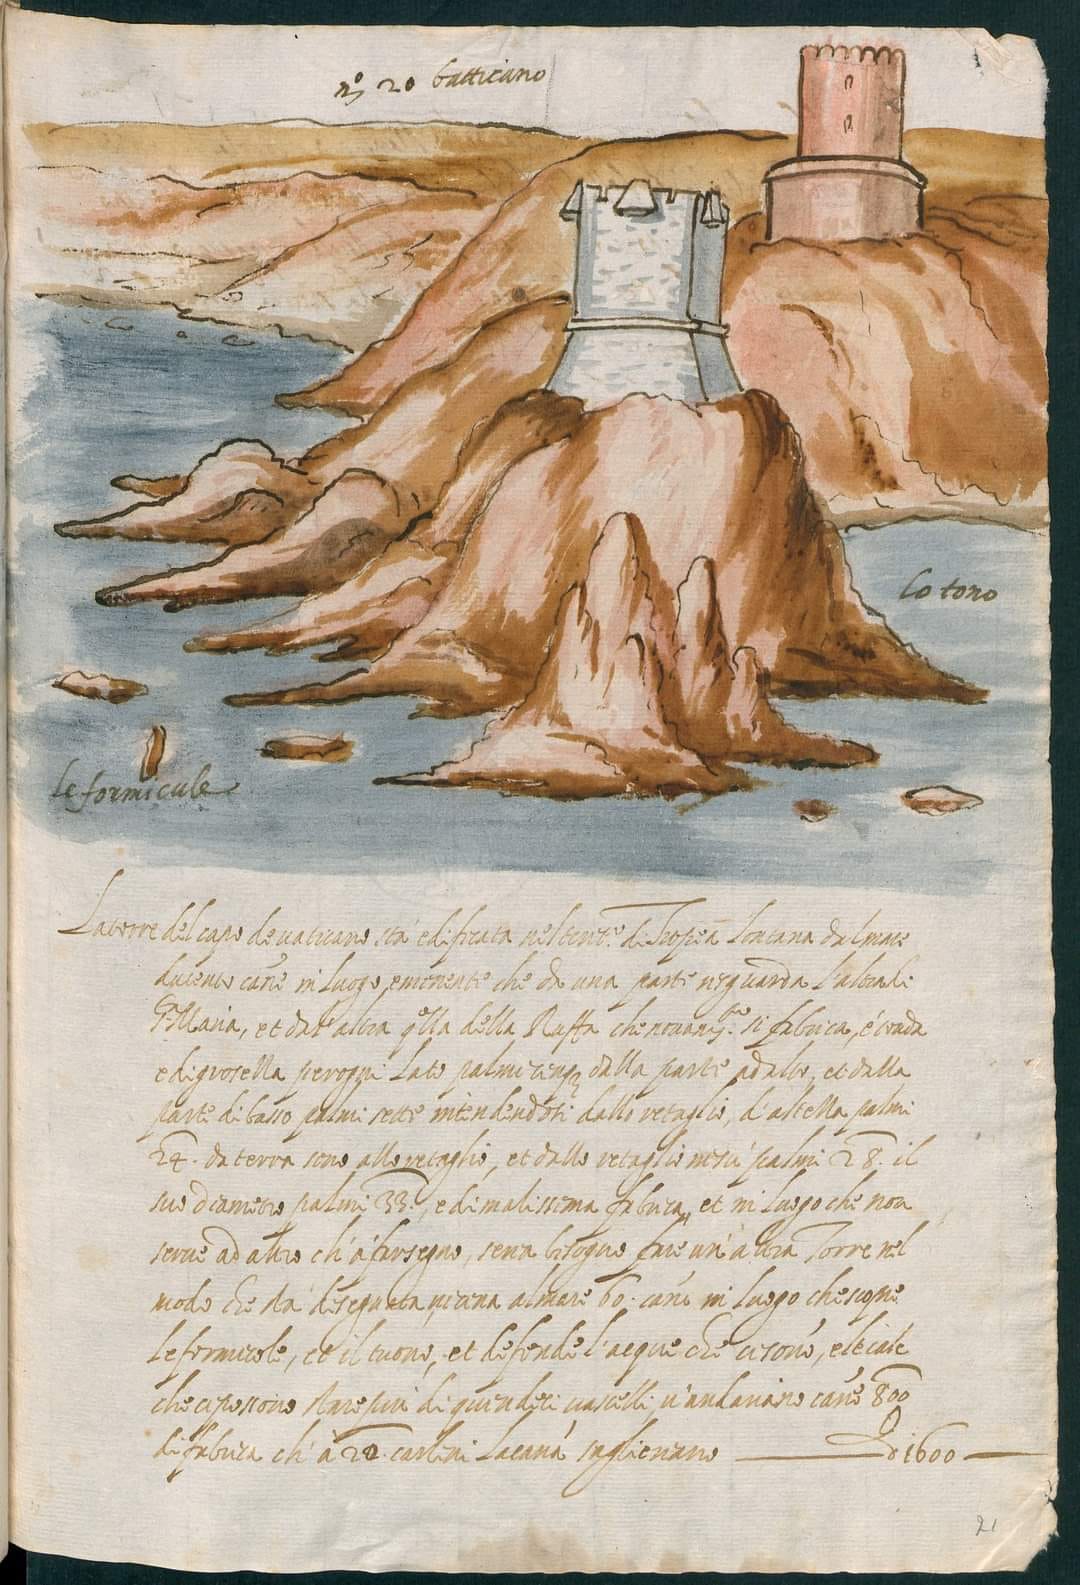 nº 20 batticano
lo tono
le formicule
La torre del capo de vaticano sta edificata nel tent.e di Tropea lontana dal mare
ducento cane in luogo eminente che da una parte risguarda l'altra di
S. Maria, et dall'altra q.lla della Ruffa che si fabrica, è tonda
e di grosezza per ogni lato palmi cinq dalla parte ad alto, et dalla
parte di basso palmi sette intendendosi dallo retaglio, d'altezza palmi
24. da terra sono allo retaglio, et dallo retaglio in su palmi 28. il
suo diametro palmi 33., e di malissima fabrica, et in luogo che non
serve ad altro ch'à far segno, seria bisogno fare un'altra Torre nel
modo che sta designata vicina al mare 60. cane in luogo che scopre
le formicole, et il tuono, et defende l'acque che ci sono, e le cale
che ci possono stare più di quindeci vascelli, v'andariano cane 800
di fabrica ch'à 20. carlini la cana saglieriano D.i 1600
21